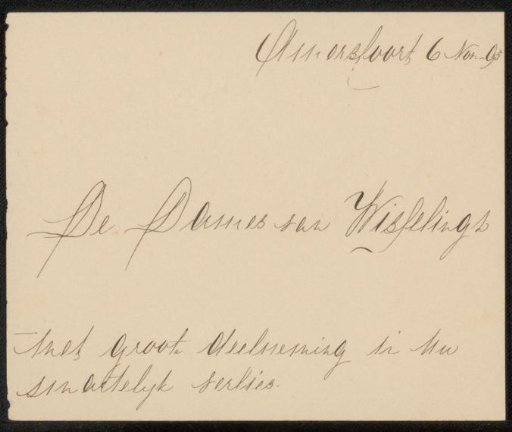 Amersfoort 6 Nov. 03
De Dames van Wisselingh
met groot deelneming in uw
smartelyk verlies.